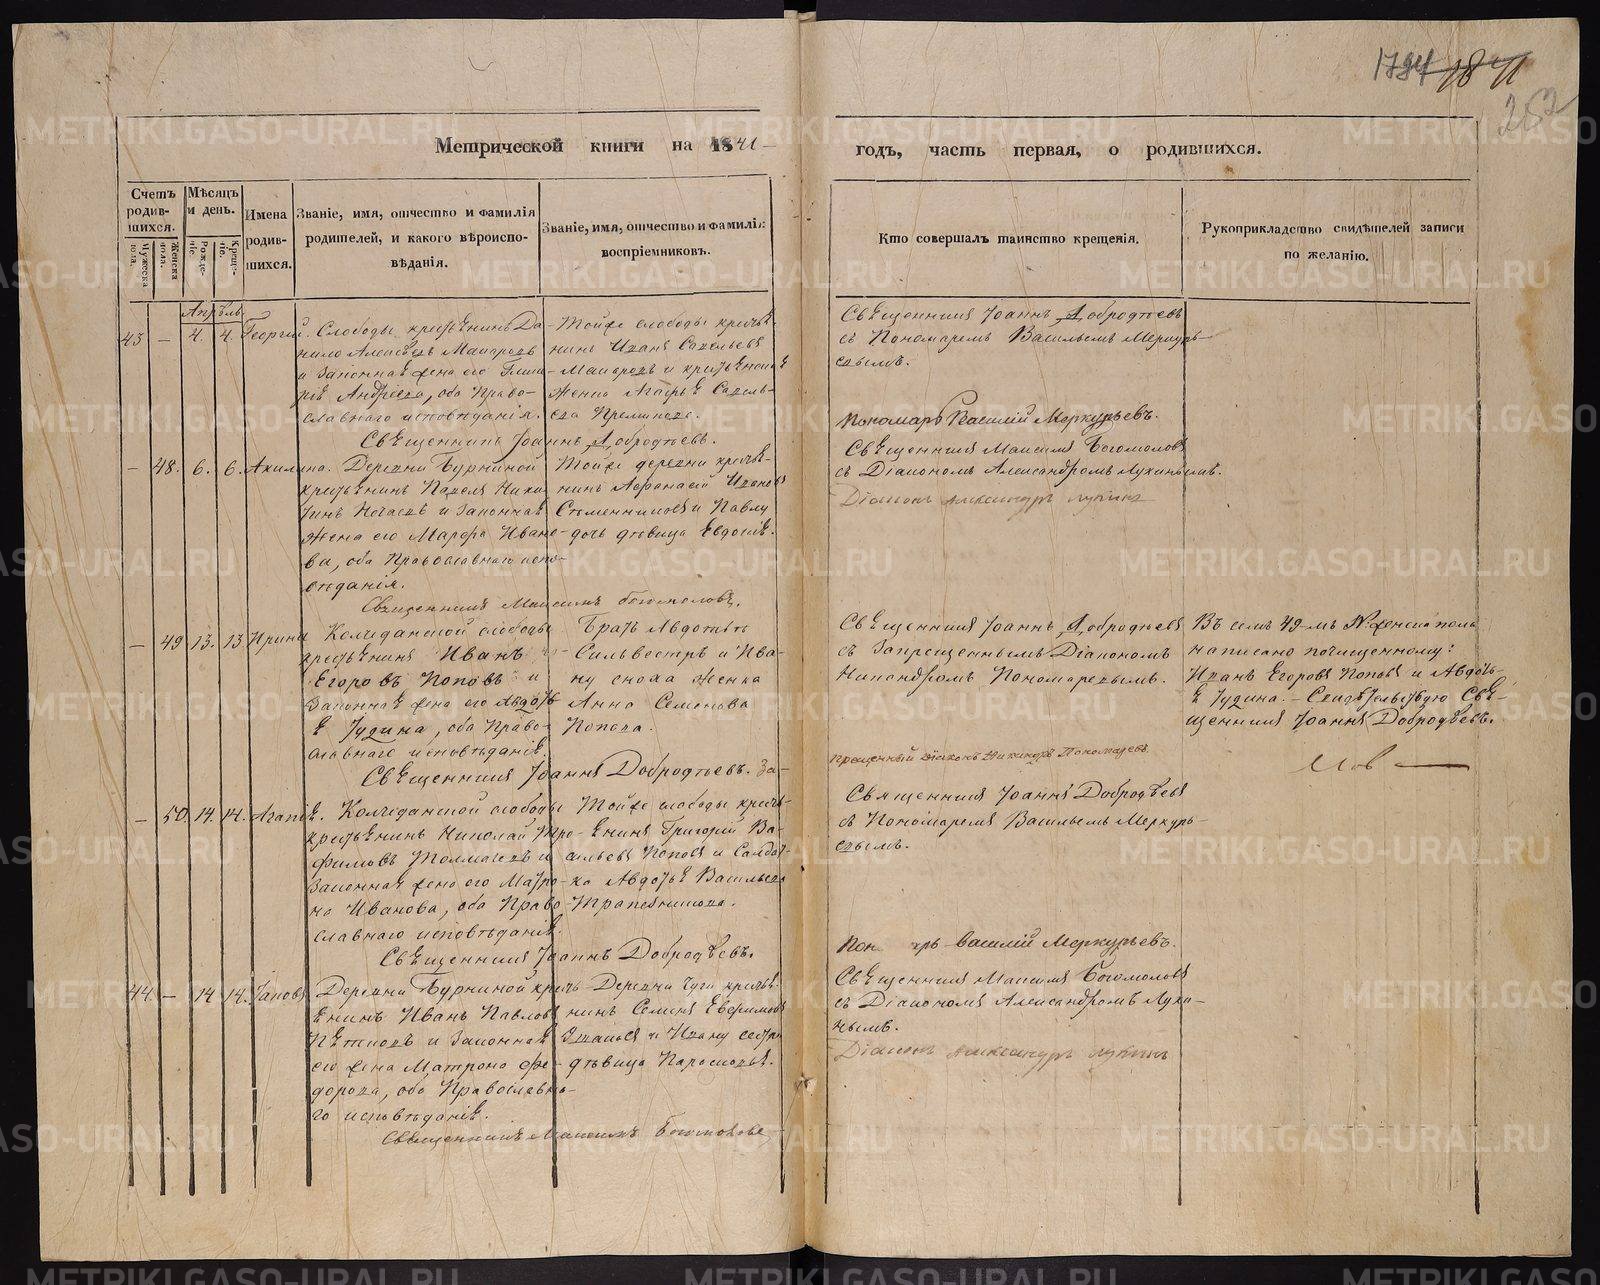 1794 1871
262
Метрической книги на 1841
годъ, часть первая, о родившихся.
Счетъ родив-шихся.
Мужеска пола.
Женска пола.
Мѣсяцъ и день.
Рожде-ніе.
Креще-ніе.
Имена родив-шихся.
Званіе, имя, отчество и фамилія
родителей, и какого вѣроиспо-
вѣданія.
Званіе, имя, отчество и фамилія
воспріемниковъ.
Кто совершалъ таинство крещенія.
Рукоприкладство свидѣтелей записи
по желанію.
Апрѣль
43 — 4. 4. Георгій.
Слободы крестьѣнинъ Да-
нило
и законнаѣ жена его
Андрѣева, оба Право-
славнаго исповѣданія.
Свѣщенникъ Іоаннъ Добродѣевъ.
Тойже слободы крестьѣ-
нинъ Иванъ Савельевъ
жена Агафьѣ Савель-
ева
Свѣщенникъ Іоаннъ Добродѣевъ
съ Пономаремъ Васильемъ Меркурь-
евымъ.
Пономарь Василій Меркурьевъ.
— 48. 6. 6. Акилина.
Деревни Бурниной
крестьѣнинъ Павелъ Ники
тинъ и законнаѣ
жена его Марфа Ивано-
ва, оба Православнаго испо-
вѣданія.
Священникъ Максимъ Богомоловъ.
Тойже деревни крестьѣ-
нинъ Афонасій Ивановъ
и Павлу
дочь дѣвица Евдокіѣ.
Свѣщенникъ Максимъ Богомоловъ
съ Діакономъ Александромъ Лукинымъ.
Діаконъ Александръ Лукинъ
— 49 13. 13 Ирина
Колчеданской слободы
крестьѣнинъ Иванъ
Егоровъ Поповъ и
законнаѣ жена его Авдоть
ѣ Іудина, оба Право-
славнаго исповѣданіѣ.
Свѣщенникъ Іоаннъ Добродѣевъ. За-
Братъ Авдотьи
Сильвестръ и Ива-
ну сноха женка
Анна Семенова
Попова.
Свѣщенникъ Іоаннъ Добродѣевъ
съ Запрещеннымъ Діакономъ
Никандромъ Пономаревымъ.
прещенный діаконъ Никандръ Пономаревъ.
Въ семъ 49-мъ № женска пола
написано почищенному:
Иванъ Егоровъ Поповъ и Авдоть-
ѣ Іудина. — Свидѣтельствую Свѣ-
щенникъ Іоаннъ Добродѣевъ.
— 50. 14. 14. Агапіѣ.
Колчеданской слободы
крестьѣнинъ Николай Тро-
фимовъ Толмачевъ и
законнаѣ жена его Матро-
на Иванова, оба Право-
славнаго исповѣданіѣ.
Свѣщенникъ Іоаннъ Добродѣевъ.
Тойже слободы кресть-
ѣнинъ Григорій Ва-
сильевъ Поповъ и Солдат-
ка Авдотьѣ Васильева
Трапезникова.
Священникъ Іоаннъ Добродѣевъ
съ Пономаремъ Васильемъ Меркурь-
евымъ.
Василій Меркурьевъ.
44. — 14 14. Іаковъ
Деревни Бурниной кресть-
ѣнинъ Иванъ Павловъ
и законнаѣ
его жена Матрона Фе-
дорова, оба Православна-
го исповѣданіѣ.
Священникъ Максимъ Богомоловъ
Деревни крестьѣ-
нинъ Семенъ
и Ивану сестра
дѣвица Параскевьѣ.
Свѣщенникъ Максимъ Богомоловъ
съ Діакономъ Александромъ Луки-
нымъ.
Діаконъ Александръ Лукинъ
METRIKI.GASO-URAL.RU